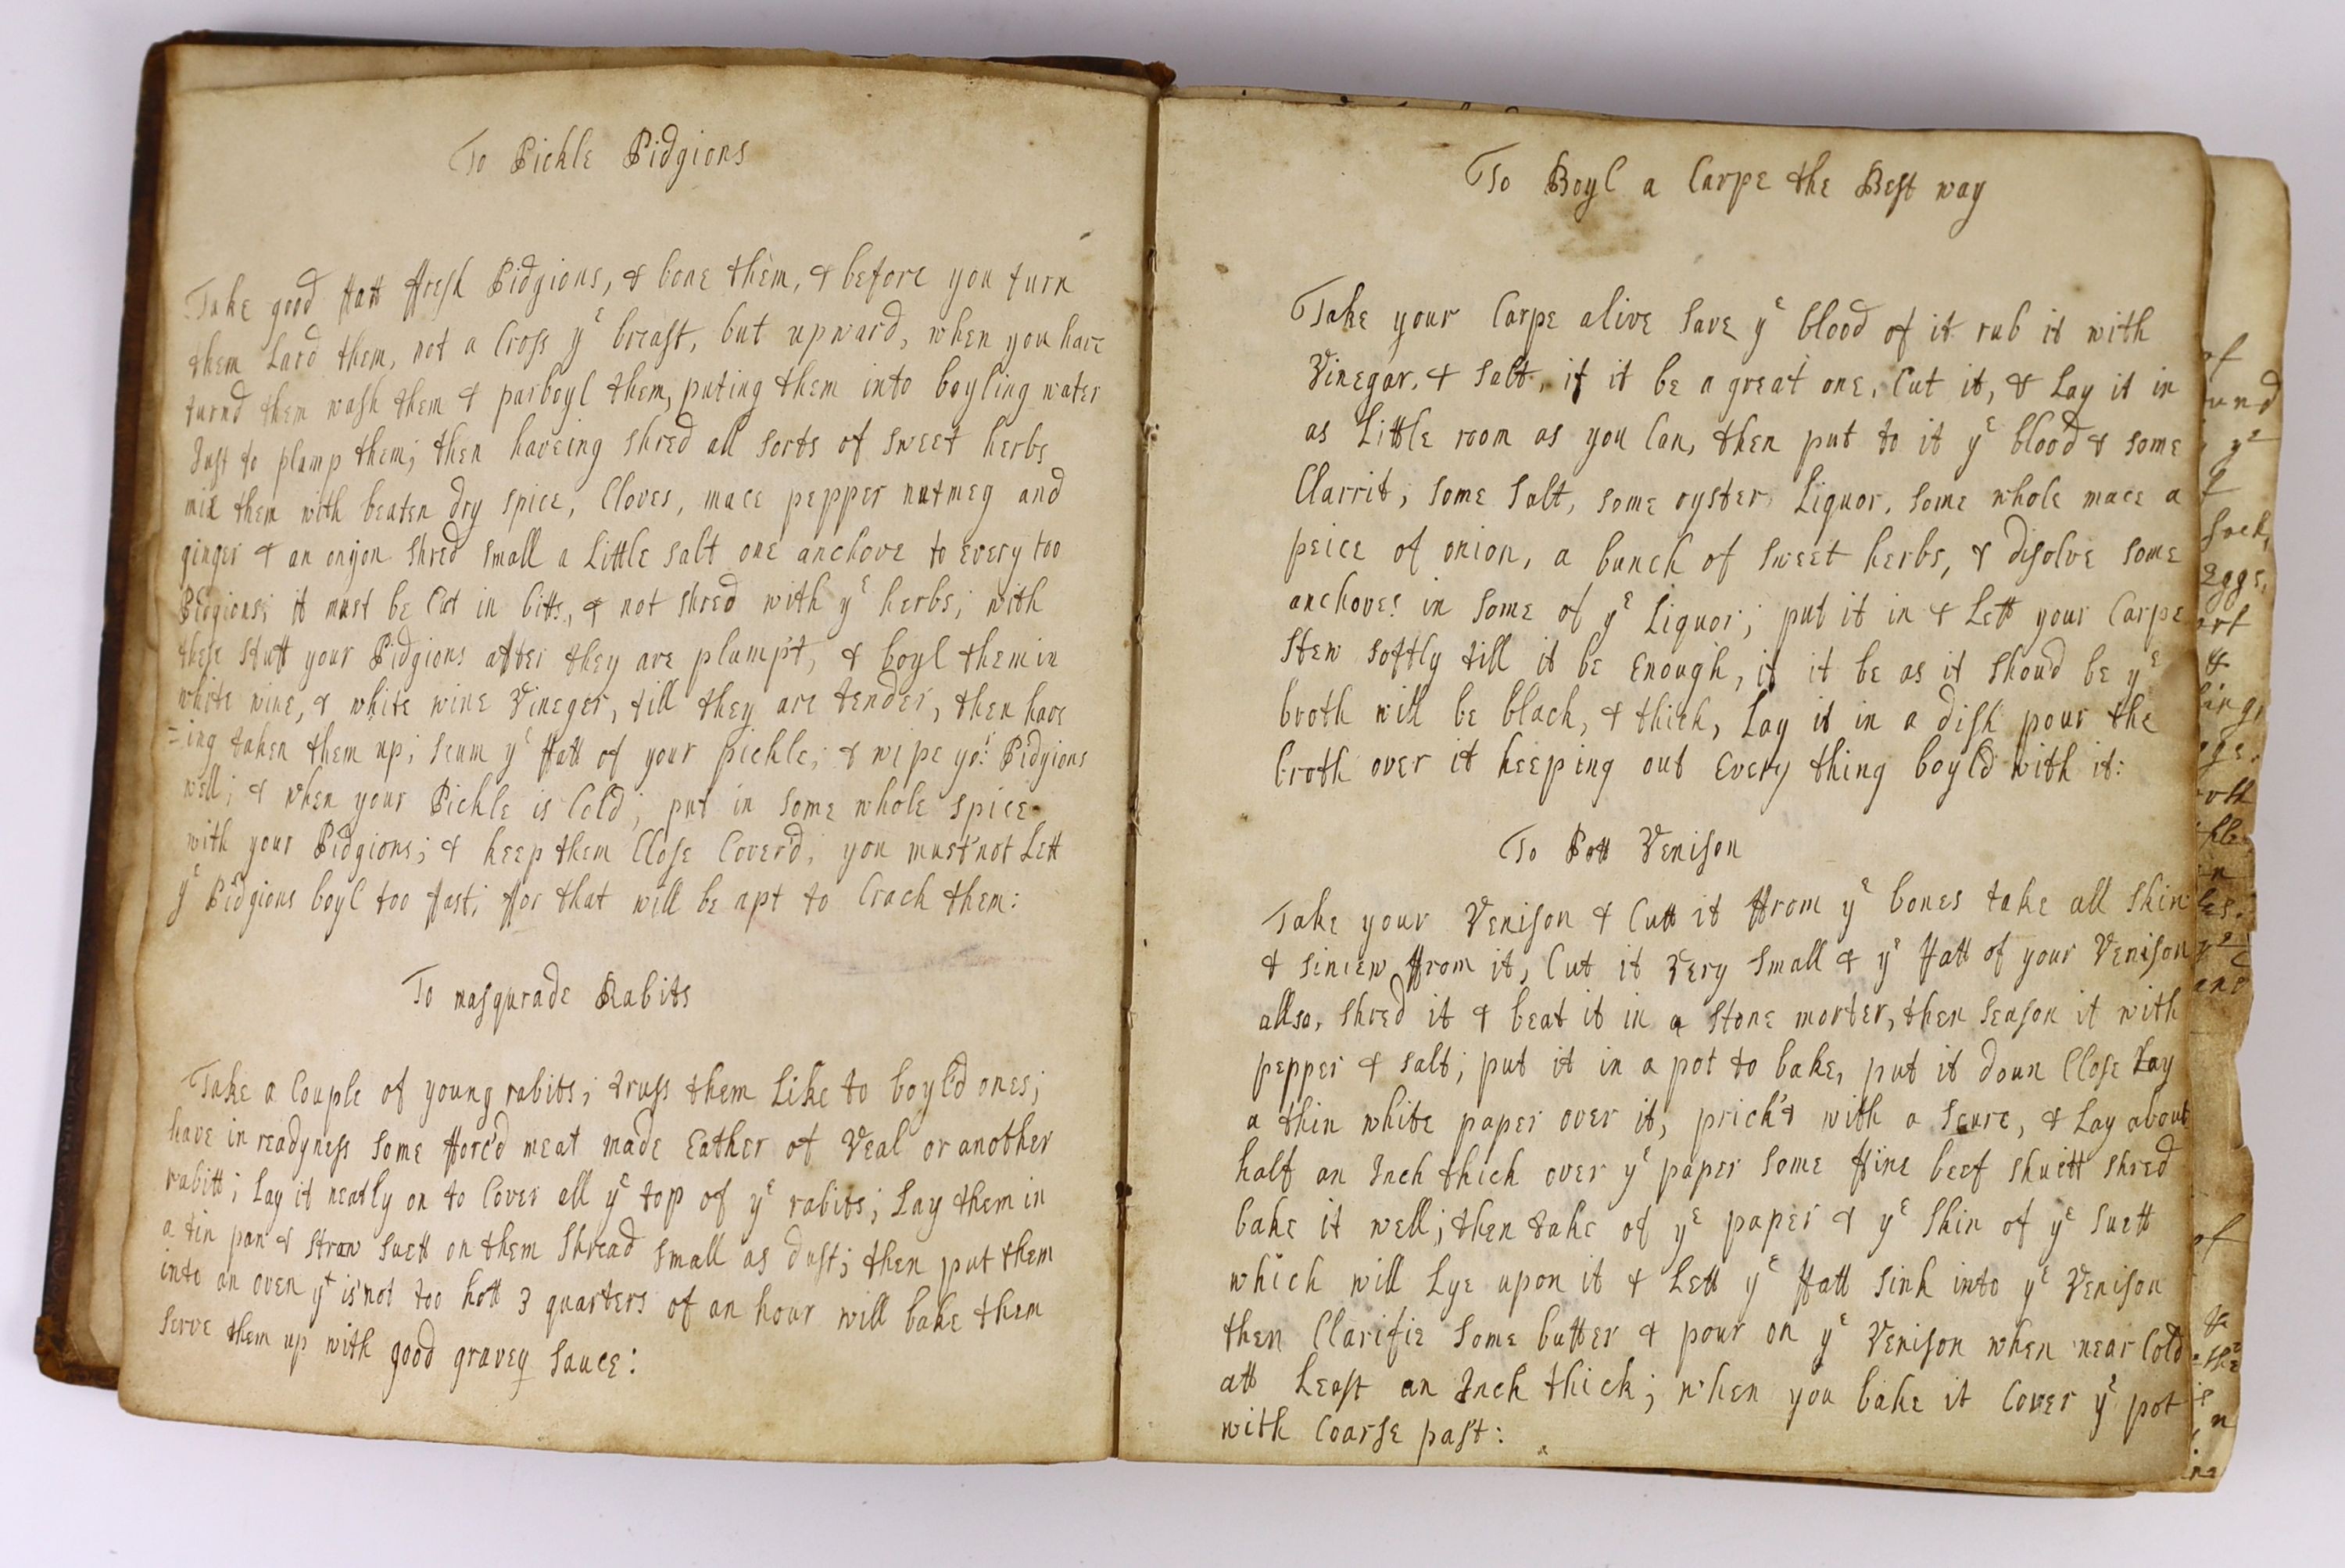 To Pickle Pidgions
Take good ffatt ffresh Pidgions, & bone them, & before you turn
them Lard them, not a Cross yᵉ breast, but upward, when you have
turnd them wash them & parboyl them, puting them into boyling water
Just to plump them; then haveing shred all sorts of sweet herbs
mix them with beaten dry spice, Cloves, mace pepper nutmeg and
ginger & an onyon shred small a Little salt one anchove to every too
Pidgions; it must be Cut in bitts, & not shred with yᵉ herbs; with
these stuff your Pidgions after they are plumpt, & boyl them in
white wine, & white wine Vineger, till they are tender, then have
=ing taken them up; scum yᵉ ffatt of your pickle; & wipe yoʳ: Pidgions
well; & when your Pickle is Cold; put in some whole spice
with your Pidgions; & keep them Close Coverd; you must not Lett
yᵉ Pidgions boyl too ffast; ffor that will be apt to Crack them:
To masqurade Rabits
Take a Couple of young rabits; truss them Like to boyl'd ones;
have in readyness some fforc'd meat made Eather of Veal or another
rabitt; Lay it neatly on to Cover all yᵉ top of yᵉ rabits; Lay them in
a tin pan & straw suett on them shread small as dust; then put them
into an oven yᵗ is not too hott 3 quarters of an hour will bake them
serve them up with good gravey sauce:
To Boyl a Carpe the Best way
Take your Carpe alive save yᵉ blood of it rub it with
Vinegar, & salt, if it be a great one, Cut it, & Lay it in
as Little room as you Can, then put to it yᵉ blood & some
Clarrit, some salt, some oyster Liquor, some whole mace a
peice of onion, a bunch of sweet herbs, & disolve some
anchoves in some of yᵉ Liquor; put it in & Lett your Carpe
stew softly till it be Enough, if it be as it shoud be yᵉ
broth will be black, & thick, Lay it in a dish pour the
broth over it keeping out Every thing boyl'd with it:
To Pott Venison
Take your Venison & Cutt it ffrom yᵉ bones take all skin
& siniew ffrom it, Cut it Very small & yᵉ ffatt of your Venison
allso, shred it & beat it in a stone morter, then season it with
pepper & salt; put it in a pot to bake, put it doun Close Lay
a thin white paper over it, prick't with a scure, & Lay about
half an Inch thick over yᵉ paper some ffine beef shuett shred
bake it well; then take of yᵉ paper & yᵉ skin of yᵉ suett
which will Lye upon it & Lett yᵉ ffatt sink into yᵉ Venison
then Clarifie some butter & pour on yᵉ Venison when near Cold
att Least an Inch thick; when you bake it Cover yᵉ pot
with Coarse past: